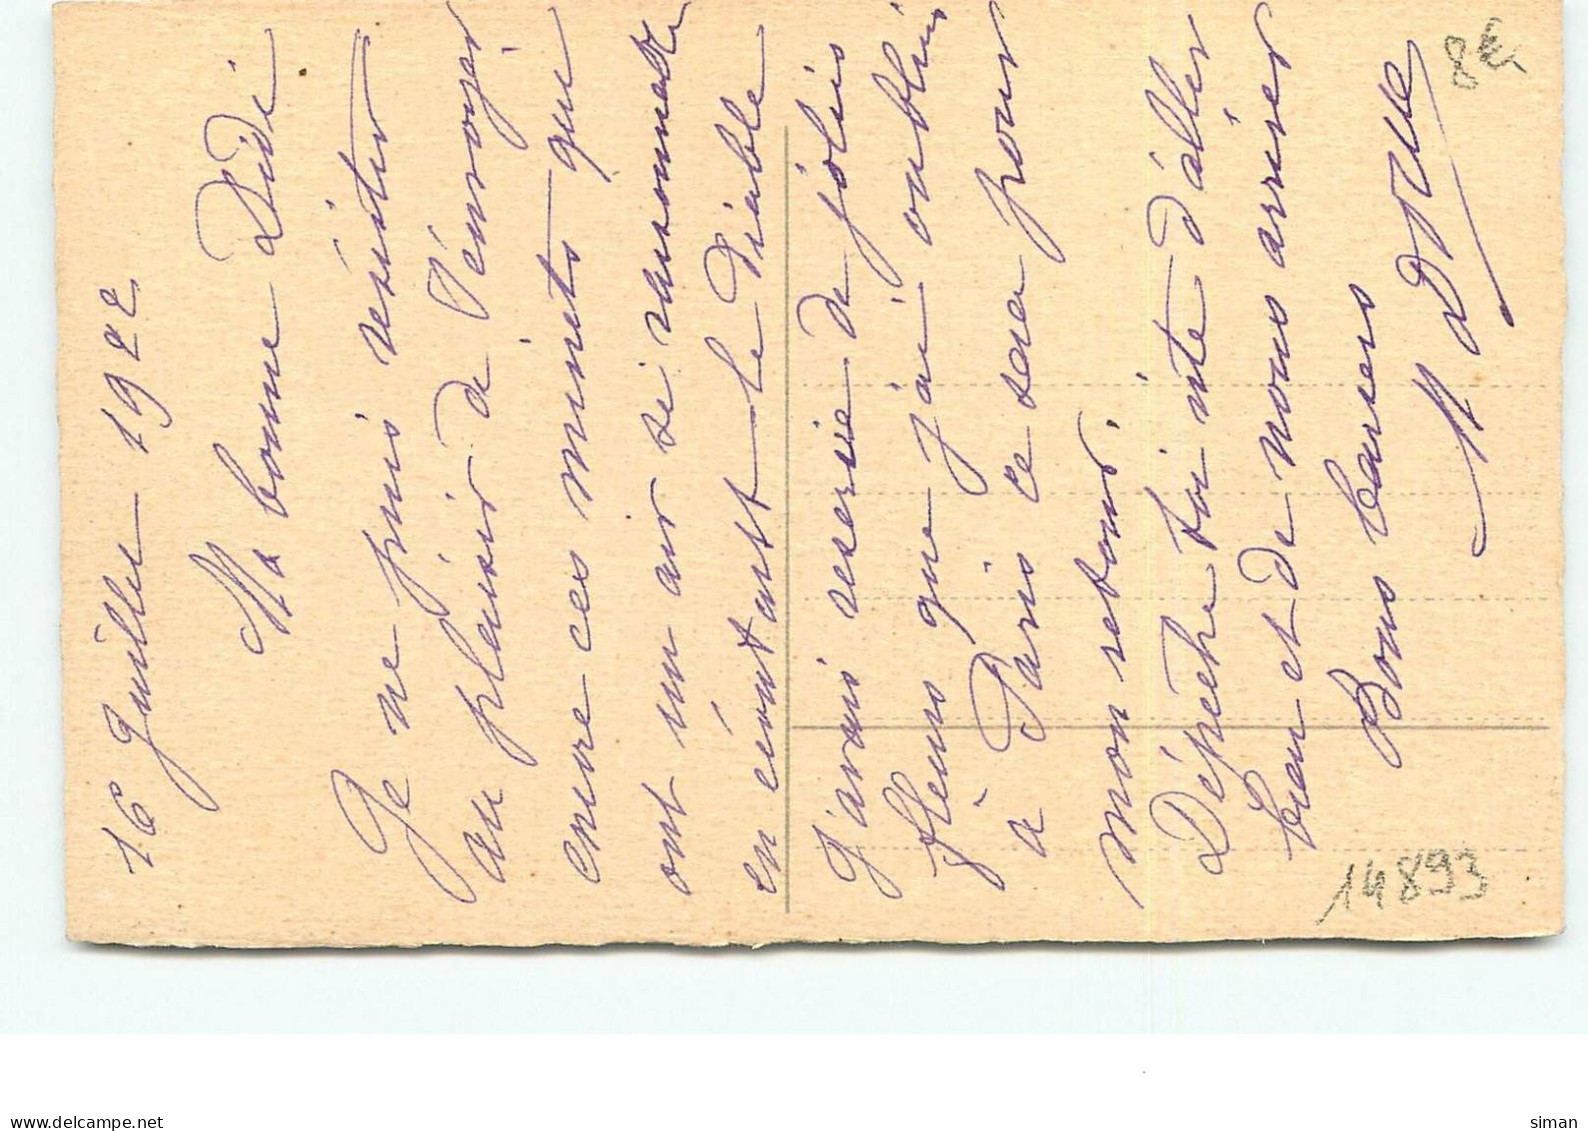 16 Juillet 1922
Ma bonne Didi
Je ne puis résister
au plaisir de t'envoyer
encore ces minets qui
ont un air si
en écoutant le Diable
J'avais de jolies
fleurs que j'ai oublié
à Paris ce sera pour
mon retour.
Dépêche toi vite d'aller
bien et de nous arriver
Bons baisers
M
8€
14893
www.delcampe.net
siman